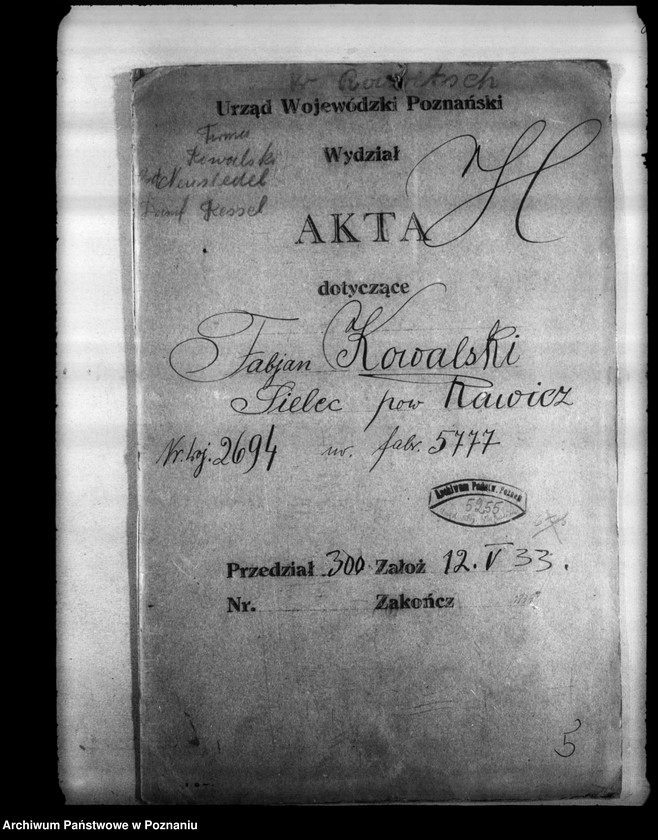 Urząd Wojewódzki Poznański
Kowalski
Neustedel
Dampf Kessel
Wydział H
AKTA
dotyczące
Fabjan Kowalski
Sielec pow Rawicz
Nr. woj. 2694 nr. fabr. 5777
Archiwum Państw. Poznań
5255
Przedział 300 Założ 12. V 33.
Nr. Zakończ
5
Archiwum Państwowe w Poznaniu